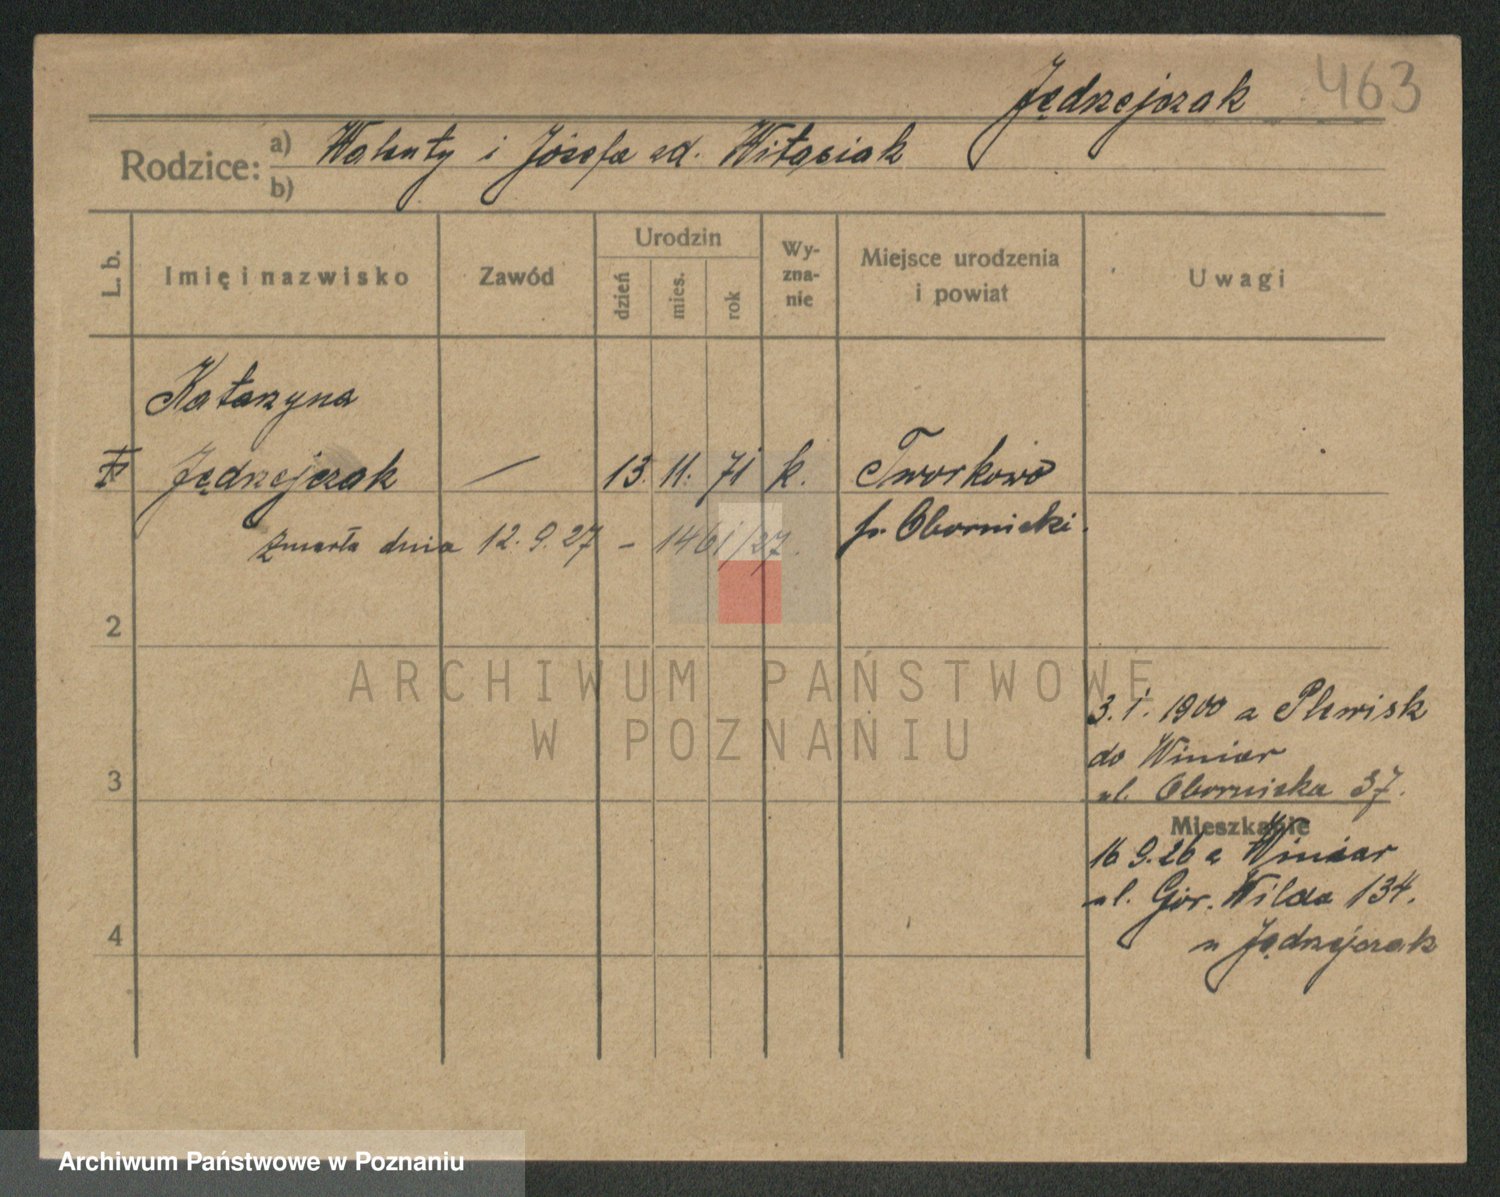 Jędrzejczak 463
Rodzice: a) Walenty i Józefa zd. Witasiak
b)
L. b. Imię i nazwisko Zawód Urodzin dzień mies. rok Wyznanie Miejsce urodzenia i powiat Uwagi
Katarzyna
Jędrzejczak — 13. 11. 71 k. Tworkowo
p. Obornicki.
zmarła dnia 12. 9. 27 – 1461/27.
2
ARCHIWUM PAŃSTWOWE
W POZNANIU
3. 1. 1900 a Plewisk
do Winiar
3
ul. Obornicka 37.
Mieszkanie
16 9. 26 a Winiar
ul. Gór. Wilda 134.
4
u Jędrzejczak
Archiwum Państwowe w Poznaniu